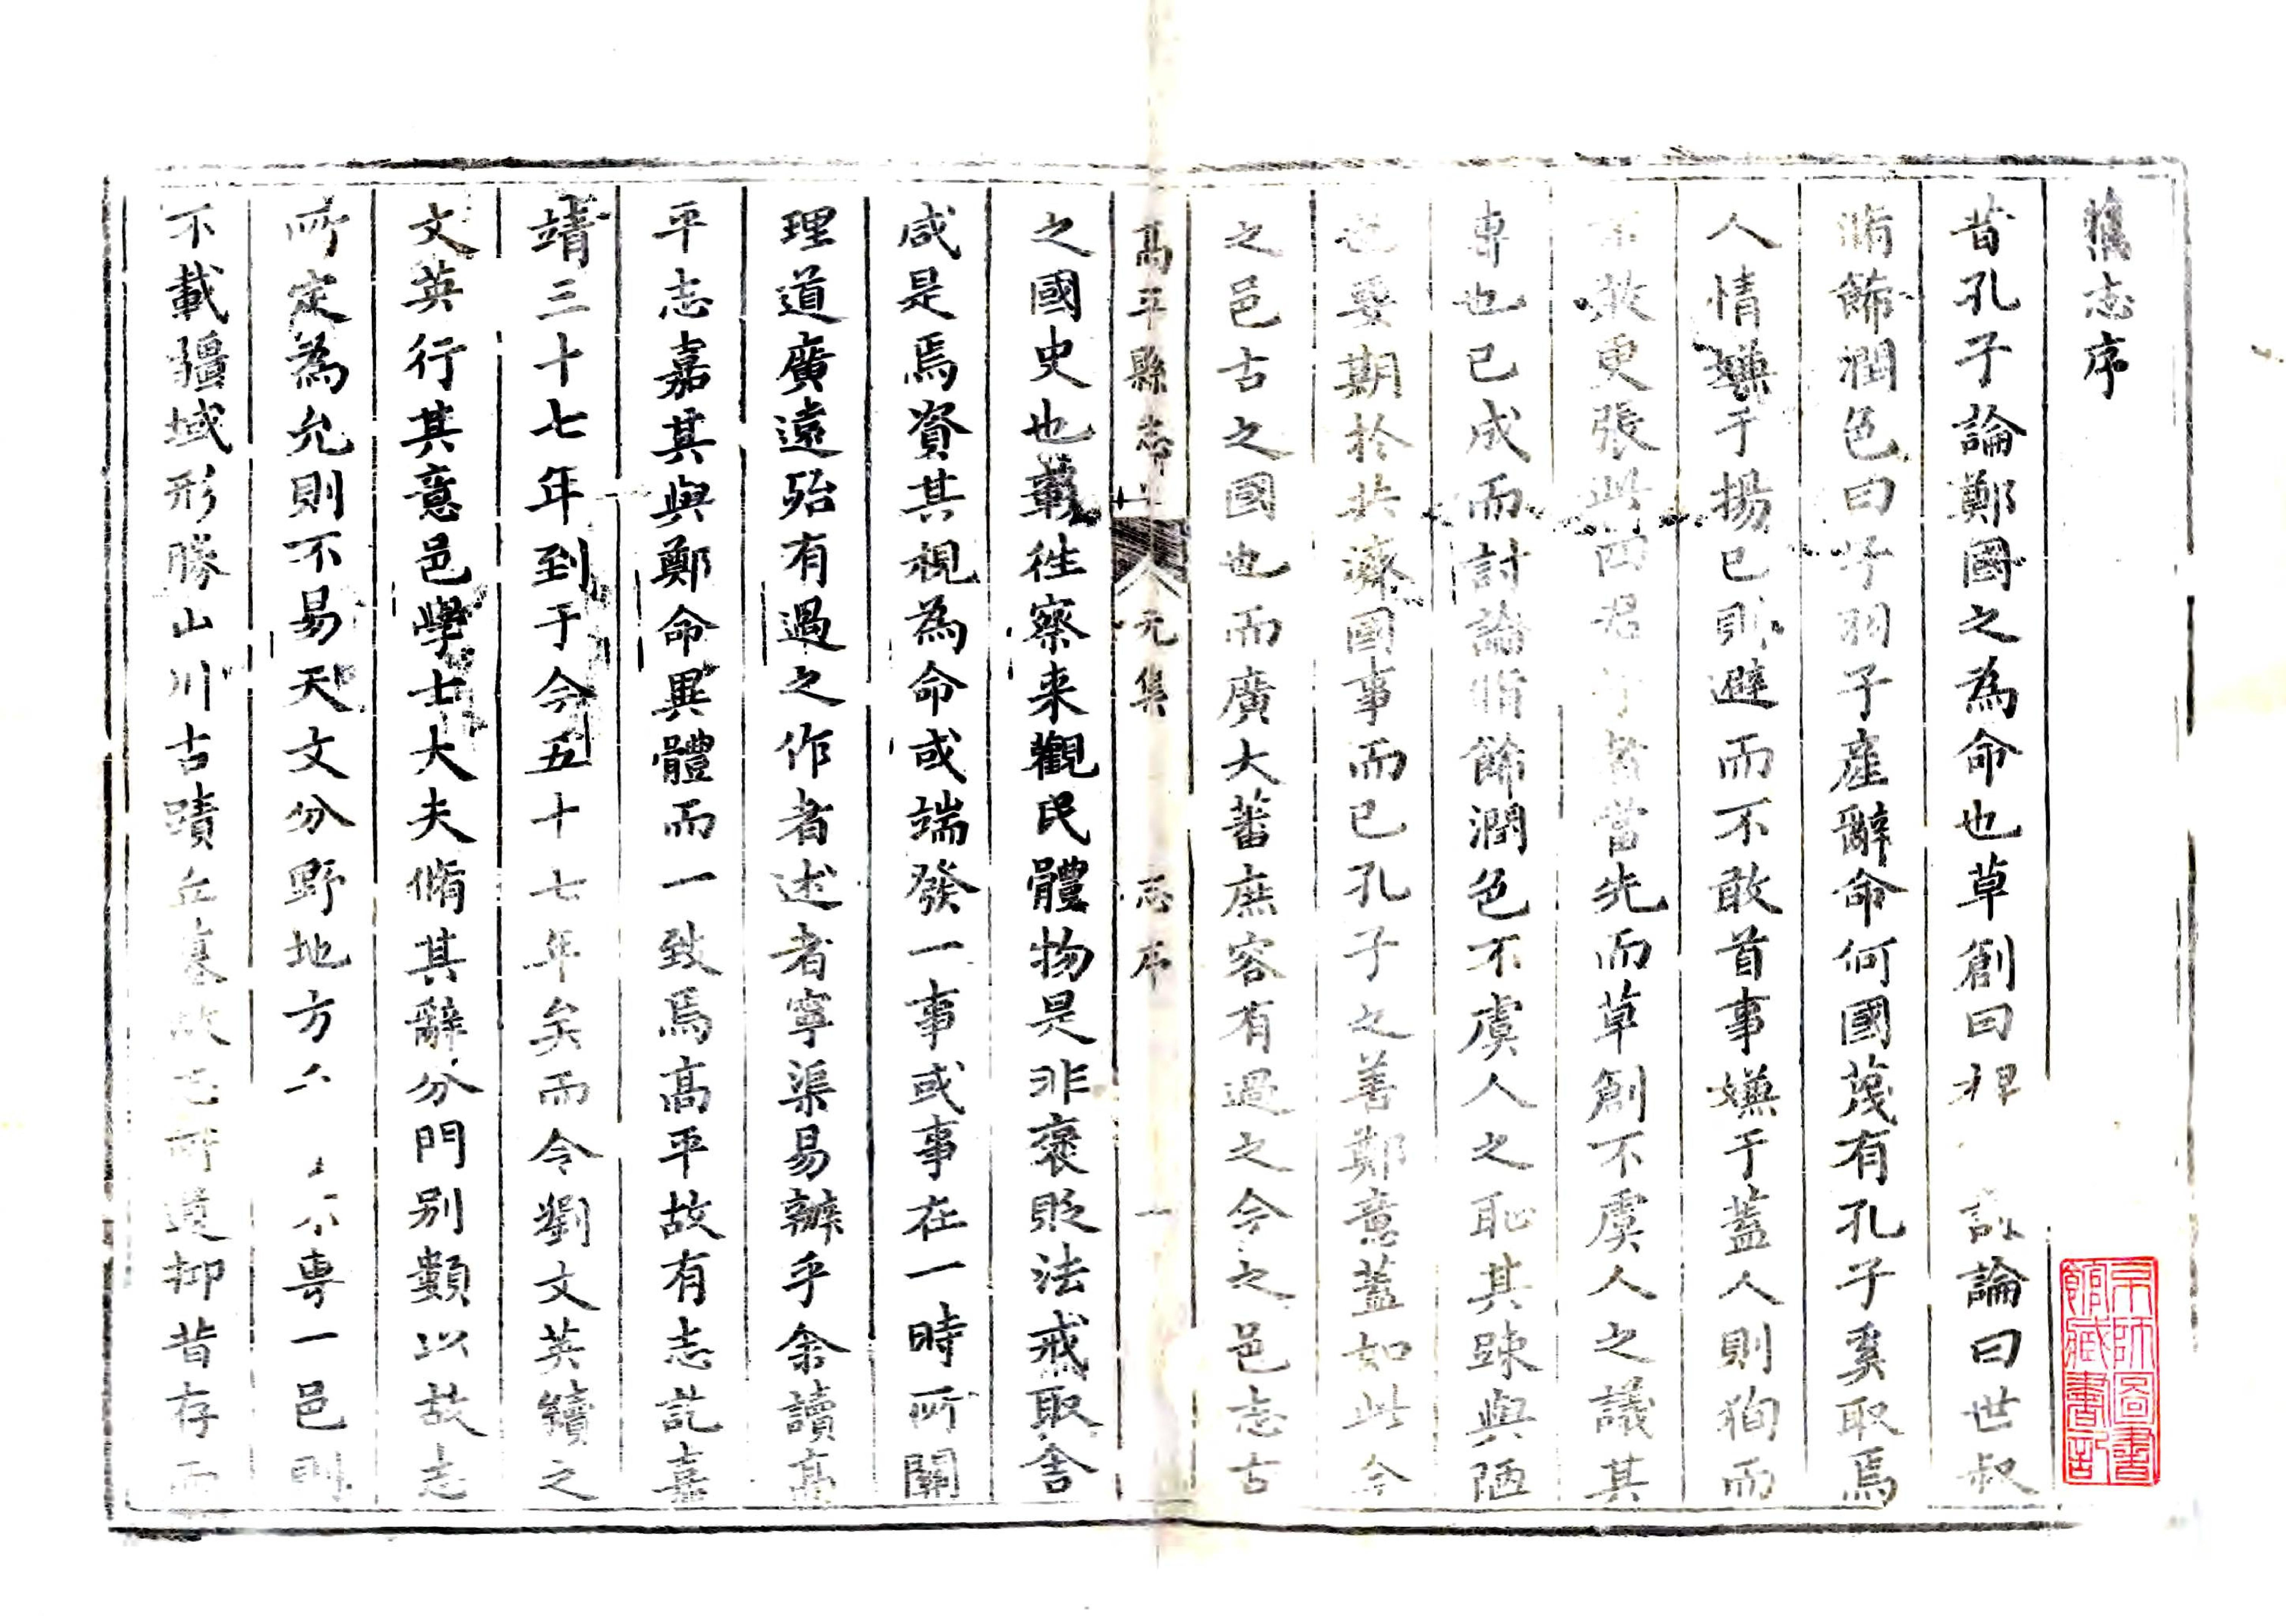 舊志序
昔孔子論鄭國之為命也草創曰裨論曰世叔
脩飾潤色曰子羽子產辭命何國蔑有孔子奚取焉
人情嫌于揚己則避而不敢首事嫌于蓋人則狥而
不敢更張此四君子者當先而草創不虞人之議其
專也已成而討論脩飾潤色不虞人之恥其踈與陋
也要期於共濟國事而已孔子之善鄭意蓋如此今
之邑古之國也而廣大蕃庶容有過之今之邑志古
高平縣志 元集 志序 一
之國史也載徃察来觀民體物是非褒貶法戒取舍
咸是焉資其視為命或端發一事或事在一時所關
理道廣遠殆有過之作者述者寧渠易辦乎余讀高
平志嘉其與鄭命異體而一致焉高平故有志訖嘉
靖三十七年到于今五十七年矣而令劉文英續之
文英行其意邑學士大夫脩其辭分門别類以故志
所定為允則不易天文分野地方不專一邑則
不載疆域形勝山川古蹟丘墓故志所遺抑昔存而
京師圖書館藏書記